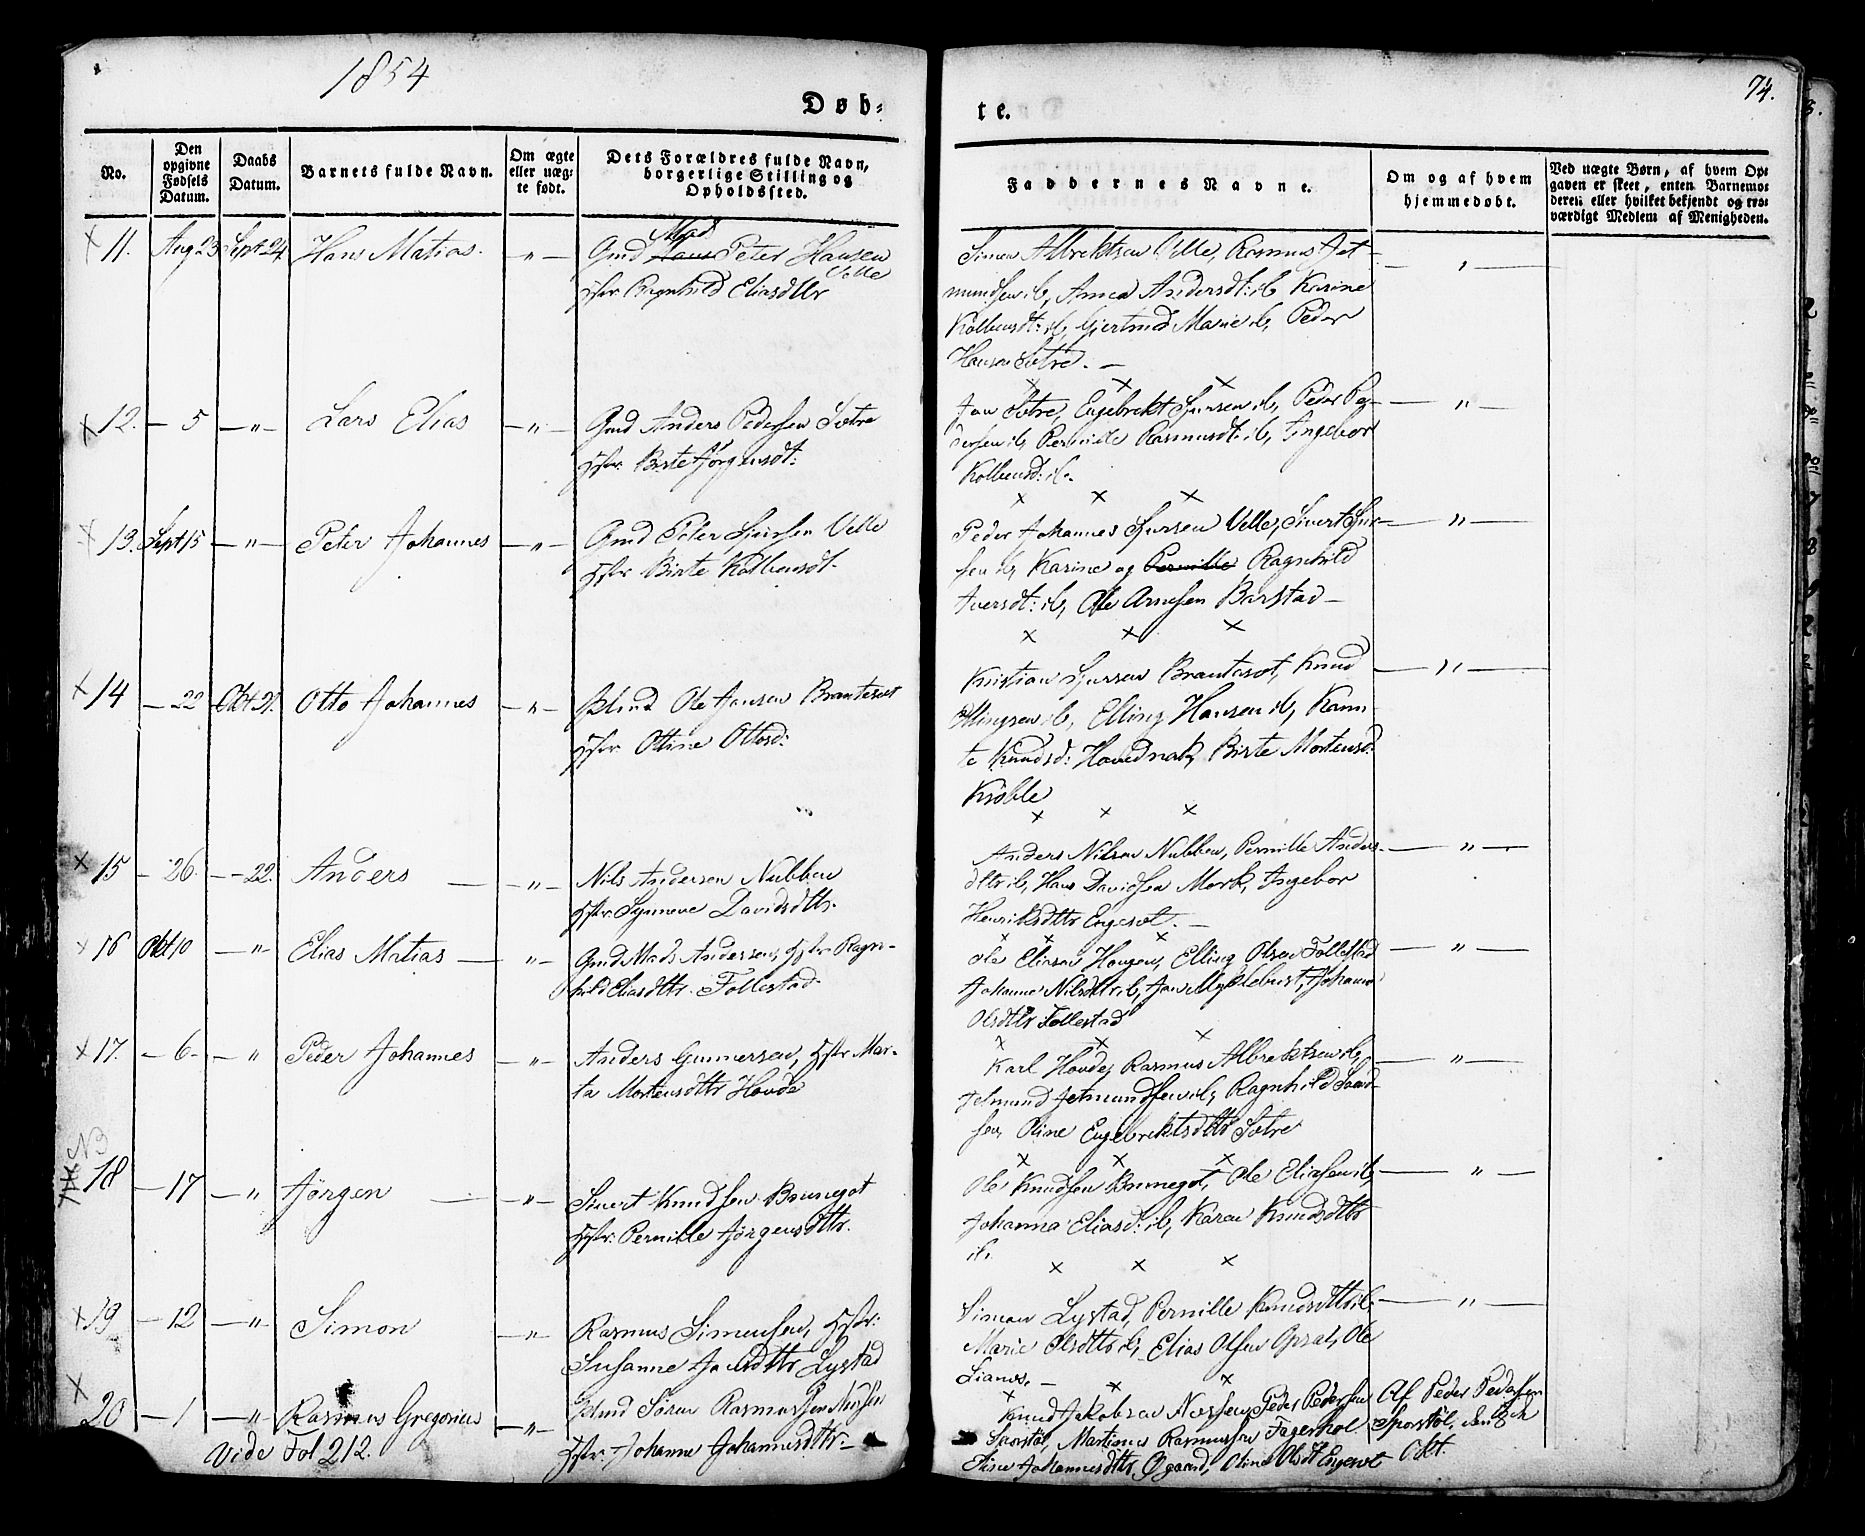 1854
74.
Døb-
te.
No.
Den opgivne Fødsels Datum.
Daabs Datum.
Barnets fulde Navn.
Om ægte eller uægte født.
Dets Forældres fulde Navn, borgerlige Stilling og Opholdssted.
Faddernes Navne.
Om og af hvem hjemmedøbt.
Ved uægte Børn, af hvem Opgaven er skeet, enten Barnemoderen eller hvilket bekjendt og troværdigt Medlem af Menigheden.
11. Aug 23 Sept 24 Hans Matias. — " — Gmd Mads Peter Hansen Velle
Hstr Ragnhild Eliasdttr
Simon Albrektsen Velle, Rasmus Jet-
mundsen ib, Anna Andersdt: ib Karine
Kolbensdt: ib, Gjertrud Marie ib, Peder
Hansen Sætre. —
12. — 5 — " — Lars Elias — " — Gmd Anders Pedersen Sætre
Hstr. Birte Jørgensdt:
Jon Sætre, Engebrekt Sjursen ib, Peder Pe-
dersen ib, Pernille Rasmusdt: ib, Ingebor
Kolbensd: ib.
13. Sept 15 — " — Peter Johannes — " — Gmd Peter Sjursen Velle
Hstr Birte Kolbensdt.
Peder Johannes Sjursen Velle, Sivert Sjur-
sen ib, Karine og Pernille Ragnhild
Iversdt: ib, Ole Arnesen Barstad —
14 — 22 — Okt 21. Otto Johannes — " — Ole Jansen
Hstr Oline Ottosd:
Kristian Sjursen Knud
Ellingsen ib, Elling Hansen ib, Karen-
te Knudsd: Hovednak, Birte Mortensd:
Krøble
15 — 26. — 22. Anders — " — Nils Andersen Nubben
Hstr. Synneve Davidsdttr.
Anders Nilsen Nubben, Pernille Anders-
dttr ib, Hans Davidsen Mork, Ingebor
Henriksdttr Engeset. —
16 Okt 10 — " — Elias Matias — " — Gmd Mads Andersen, Hstr. Ragn-
hild Eliasdttr. Follestad.
Ole Eliasen Hougen, Elling Olsen Follestad
Johanne Nilsdttr ib, Jon Myklebust, Johanne
Olsdttr Follestad
17. — 6 — — " Peder Johannes — " — Anders Gunnersen, Hstr Mar-
ta Mortensdttr Hovde
Karl Hovde, Rasmus Albrektsen ib,
Jetmund Jetmundsen ib, Ragnhild
Oline Engebrektsdttr Sætre
NB
18 — 17 — " Jørgen — " — Sivert Knudsen Brunegot
Hstr: Pernille Jørgensdttr.
Ole Knudsen Brunegot, Ole Eliasen ib,
Johanna Eliasd: ib, Karen Knudsdttr
ib.
19 — 12 — " — Simon — " — Rasmus Simensen, Hstr:
Susanne Lystad
Simon Lystad, Pernille Knudsdttr ib,
Marie Olsdttr ib, Elias Olsen Opsal, Ole
20 — 1 — " Rasmus Gregorius — " — Søren Rasmussen
Hstr. Johanne Johannesdttr —
Knud Jakobsen Peder Pedersen
Sporstøl, Martinus Rasmussen Fagerhol
Johannesdttr Øgaard, Oline Olsdt Engeset
Af Peder Pedersen
Sporstøl, den 8de
Okt.
Vide Fol 212.